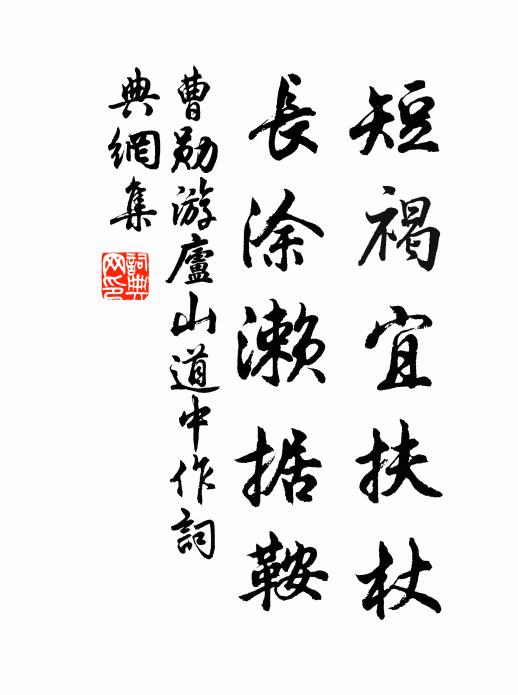 短褐宜扶杖
長涂濑据鞍
曹勋游廬山道中作詞
典網集
詞典网印